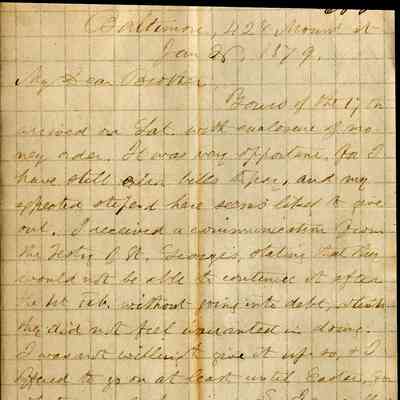 Baltimore, 428 Mount St
Jan 26, 1879.
My Dear Brother,
Yours of the 17th
arrived on Sat. with enclosure of mo
ney order. It was very opportune, for I
have still bills to pay, and my
expected stipend here seems likely to give
out. I received a communication from
the Vestry of St. George's, stating that they
would not be able to continue it after
the 1st Feb. without going into debt, which
they did not feel warranted in doing.
I was not willing to give it up so, & I
offered to go on at least until Easter,